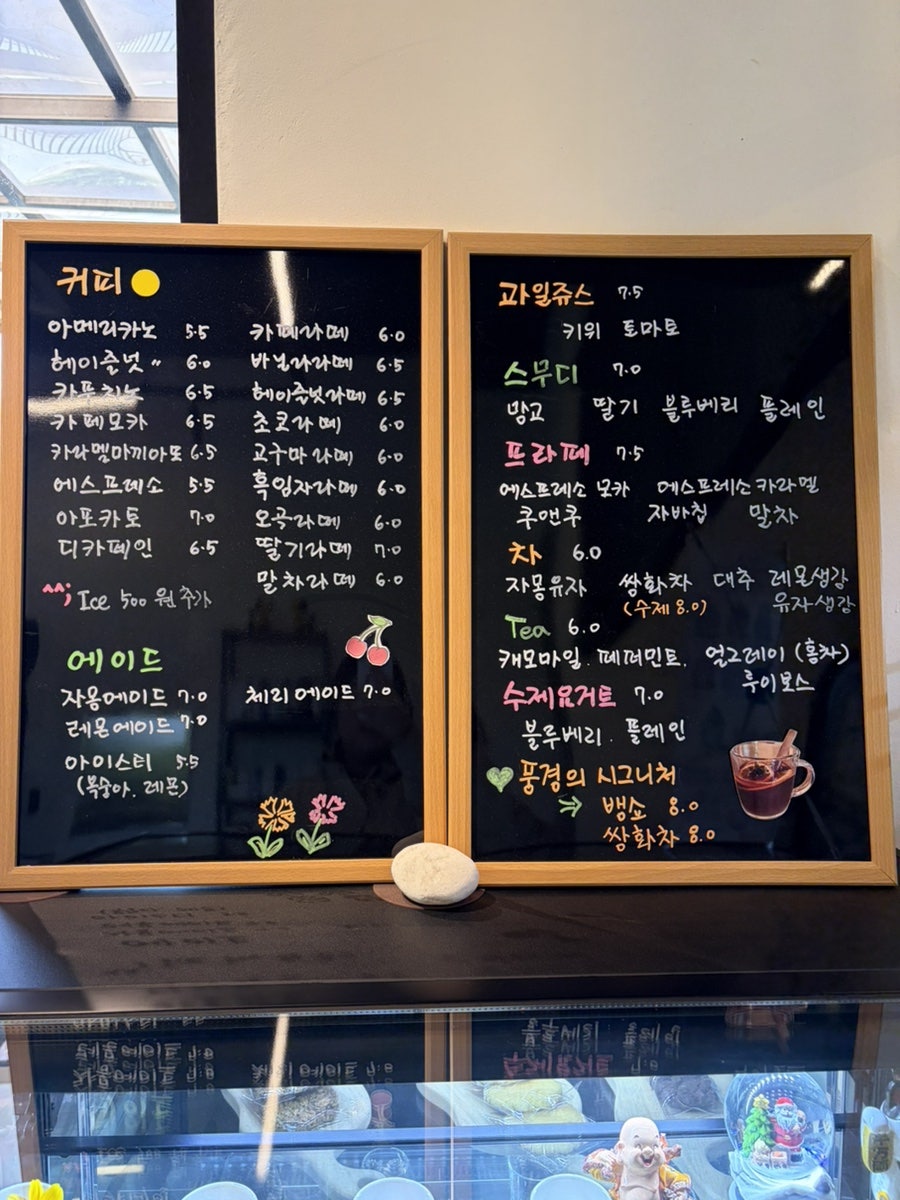 커피
아메리카노 5.5
헤이즐넛 〃 6.0
카푸치노 6.5
카페모카 6.5
카라멜마끼아또 6.5
에스프레소 5.5
아포카토 7.0
디카페인 6.5
카페라떼 6.0
바닐라라떼 6.5
헤이즐넛라떼 6.5
초코라떼 6.0
고구마라떼 6.0
흑임자라떼 6.0
오곡라떼 6.0
딸기라떼 7.0
말차라떼 6.0
^^; Ice 500원 추가
에이드
자몽에이드 7.0
레몬에이드 7.0
체리에이드 7.0
아이스티 5.5
(복숭아. 레몬)
과일쥬스 7.5
키위 토마토
스무디 7.0
망고 딸기 블루베리 플레인
프라페 7.5
에스프레소 모카 에스프레소 카라멜
쿠앤쿠 자바칩 말차
차 6.0
자몽유자 쌍화차 대추 레몬생강
(수제 8.0) 유자생강
Tea 6.0
캐모마일. 페퍼민트. 얼그레이 (홍차)
루이보스
수제요거트 7.0
블루베리. 플레인
풍경의 시그니처
→ 뱅쇼 8.0
쌍화차 8.0